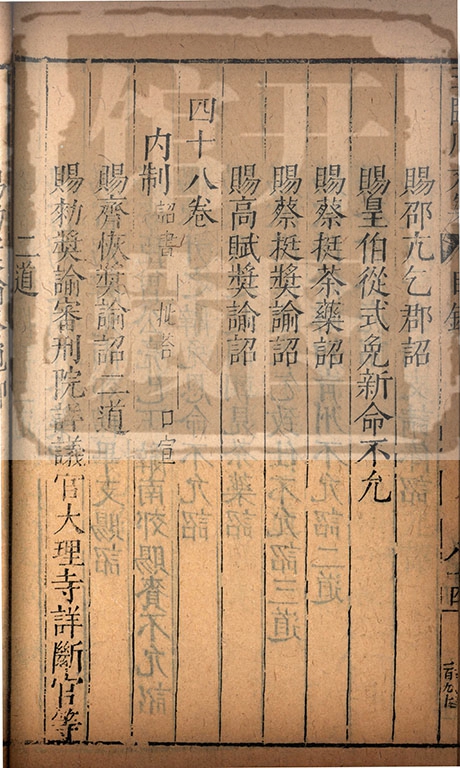 賜邵亢乞郡詔
賜皇伯從式免新命不允
賜蔡挺茶藥詔
賜蔡挺獎諭詔
賜高賦獎諭詔
四十八卷
内制 詔書 批荅 口宣
賜齊恢獎諭詔二道
賜勑獎諭審刑院詳議官大理寺詳斷官等
二道